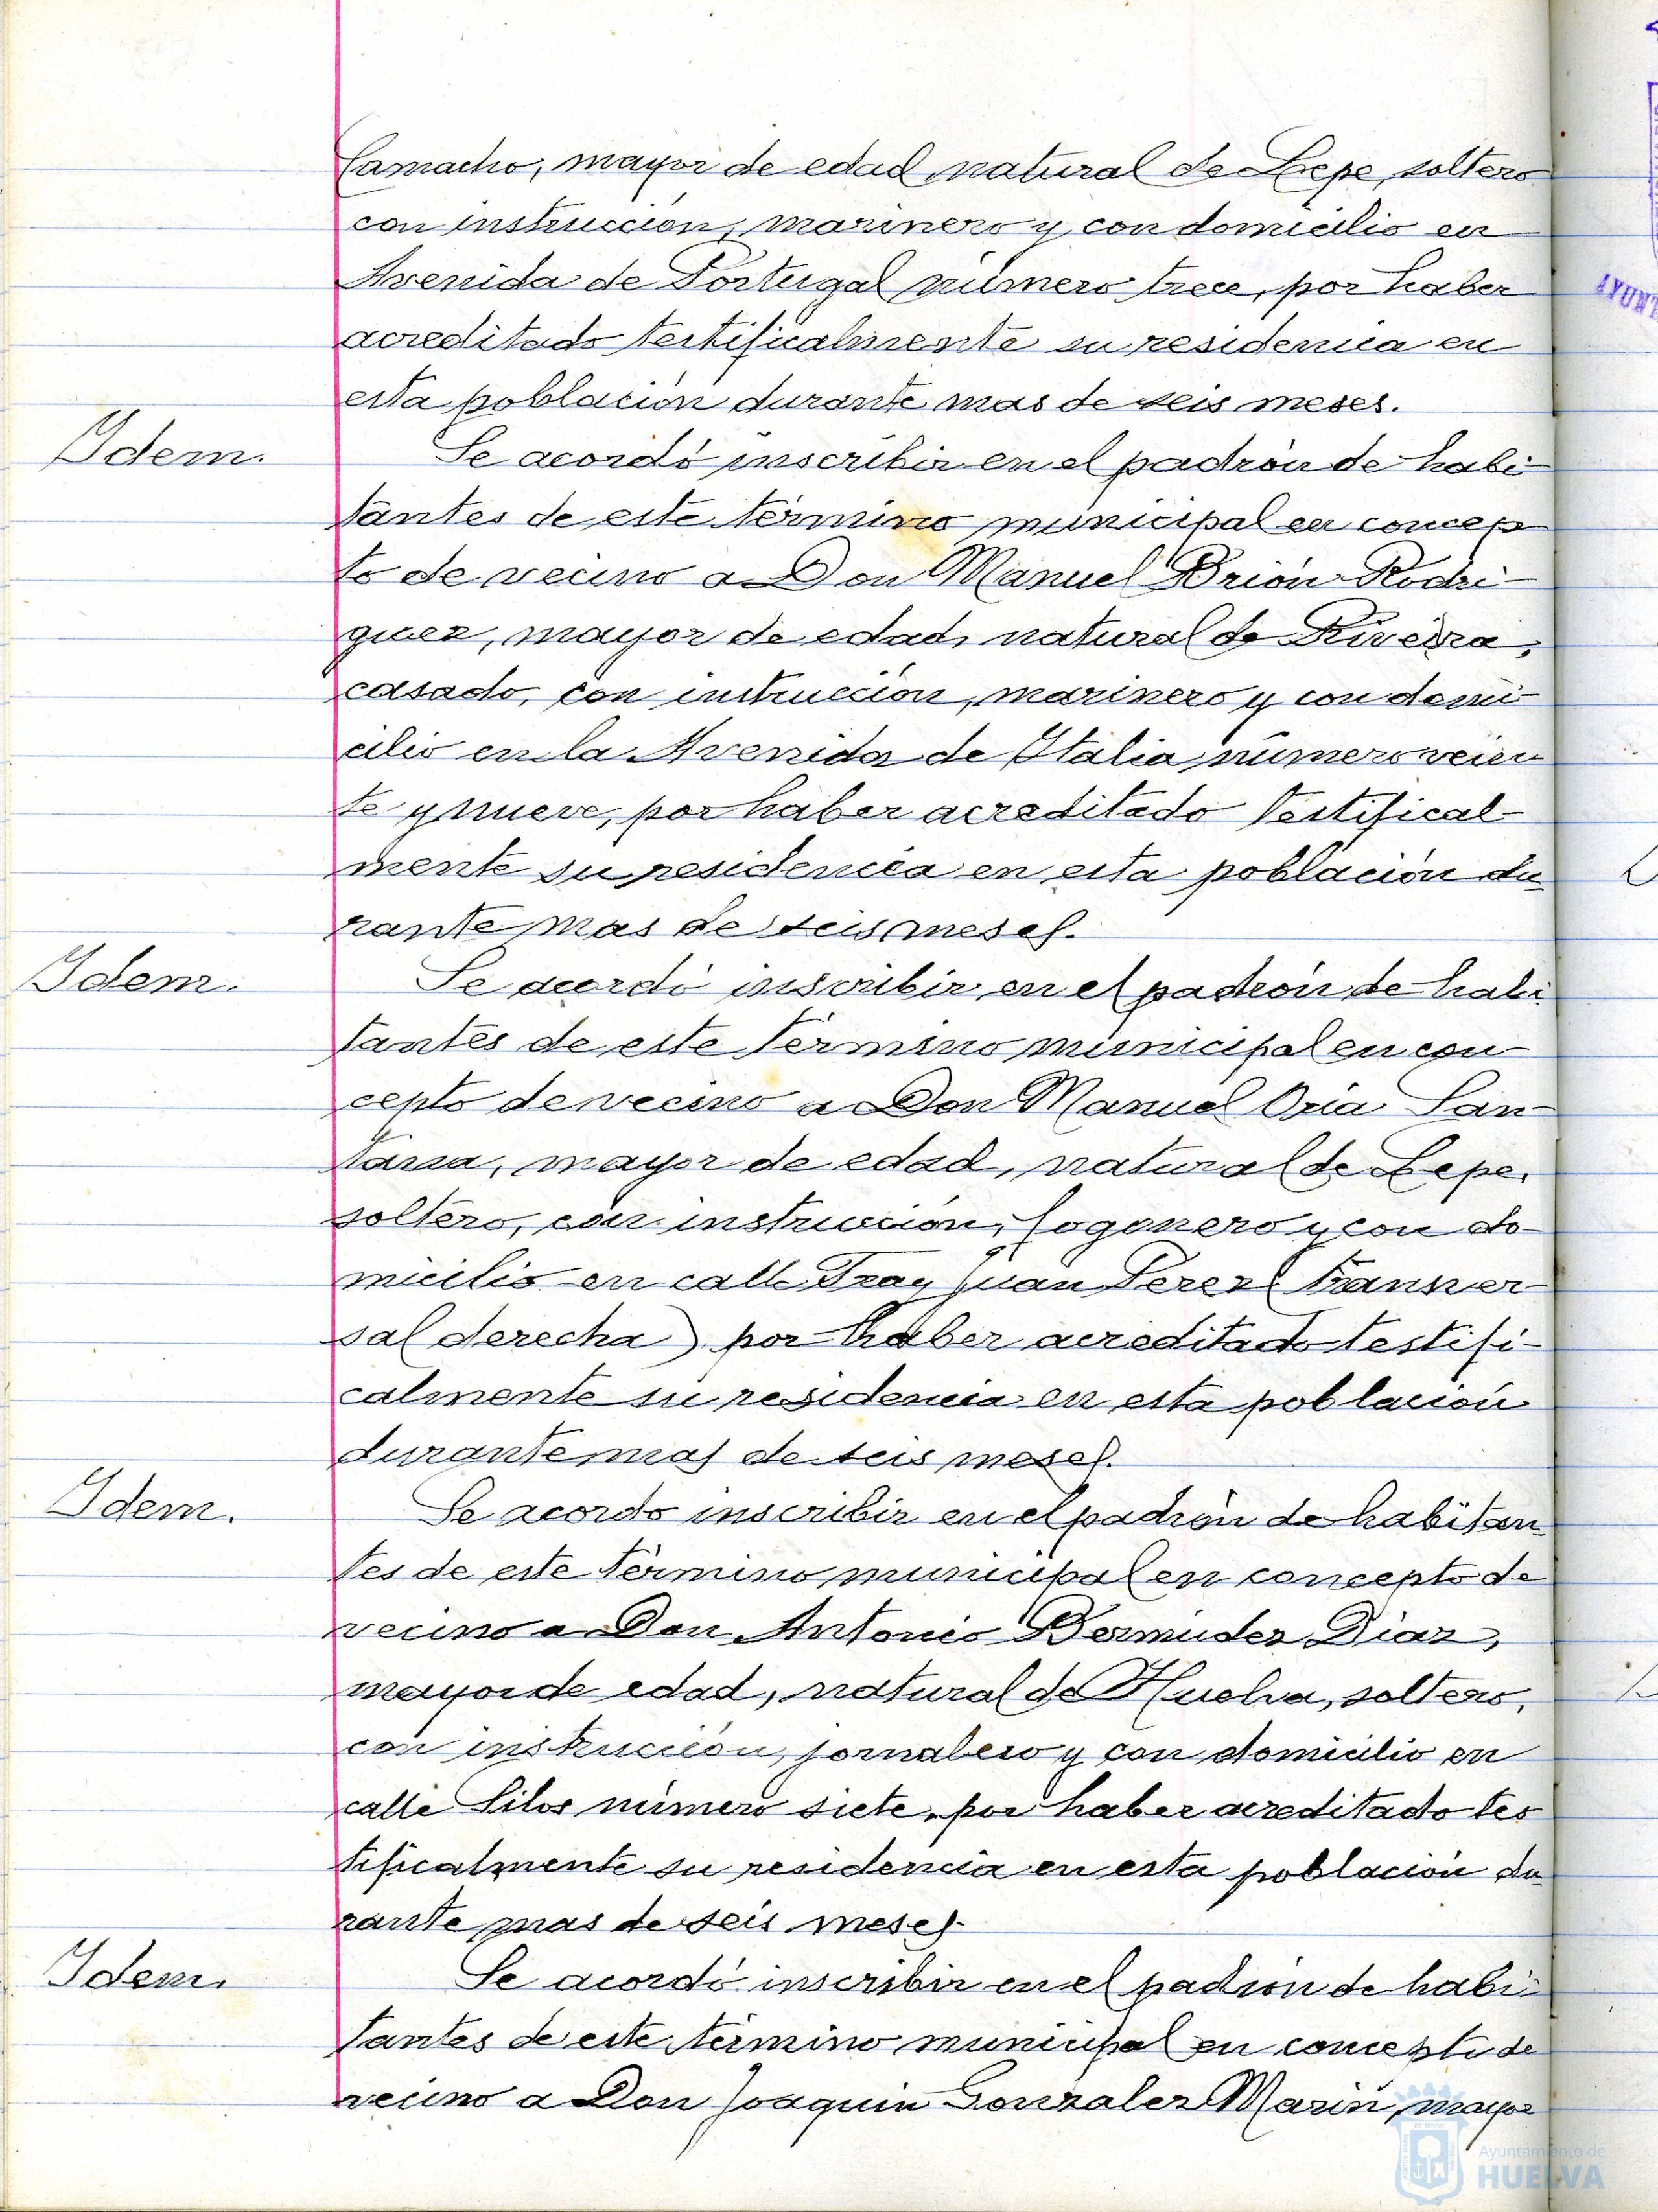 Camacho, mayor de edad, natural de Lepe, soltero
con instrucción, marinero y con domicilio en
Avenida de Portugal número trece, por haber
acreditado testificalmente su residencia en
esta población durante mas de seis meses.
Idem.
Se acordó inscribir en el padrón de habi-
tantes de este término municipal en concep
to de vecino a Don Manuel Brión Rodri-
guez, mayor de edad, natural de Riveira,
casado, con instrucción, marinero y con domi-
cilio en la Avenida de Italia número vein
te y nueve, por haber acreditado testifical-
mente su residencia en esta población du
rante mas de seis meses.
Idem.
Se acordó inscribir en el padrón de habi
tantes de este término municipal en con-
cepto de vecino a Don Manuel Oria San-
tana, mayor de edad, natural de Lepe,
soltero, con instrucción, fogonero y con do-
micilio en calle Fray Juan Perez (transver-
sal derecha) por haber acreditado testifi-
calmente su residencia en esta población
durante mas de seis meses.
Idem.
Se acordo inscribir en el padrón de habitan
tes de este término municipal en concepto de
vecino a Don Antonio Bermudez Diaz,
mayor de edad, natural de Huelva, soltero,
con instrucción, jornalero y con domicilio en
calle Silos número siete, por haber acreditado tes
tificalmente su residencia en esta población du
rante mas de seis meses.
Idem.
Se acordó inscribir en el padrón de habi-
tantes de este término municipal en concepto de
vecino a Don Joaquin Gonzalez Marin, mayor
Ayuntamiento de
HUELVA